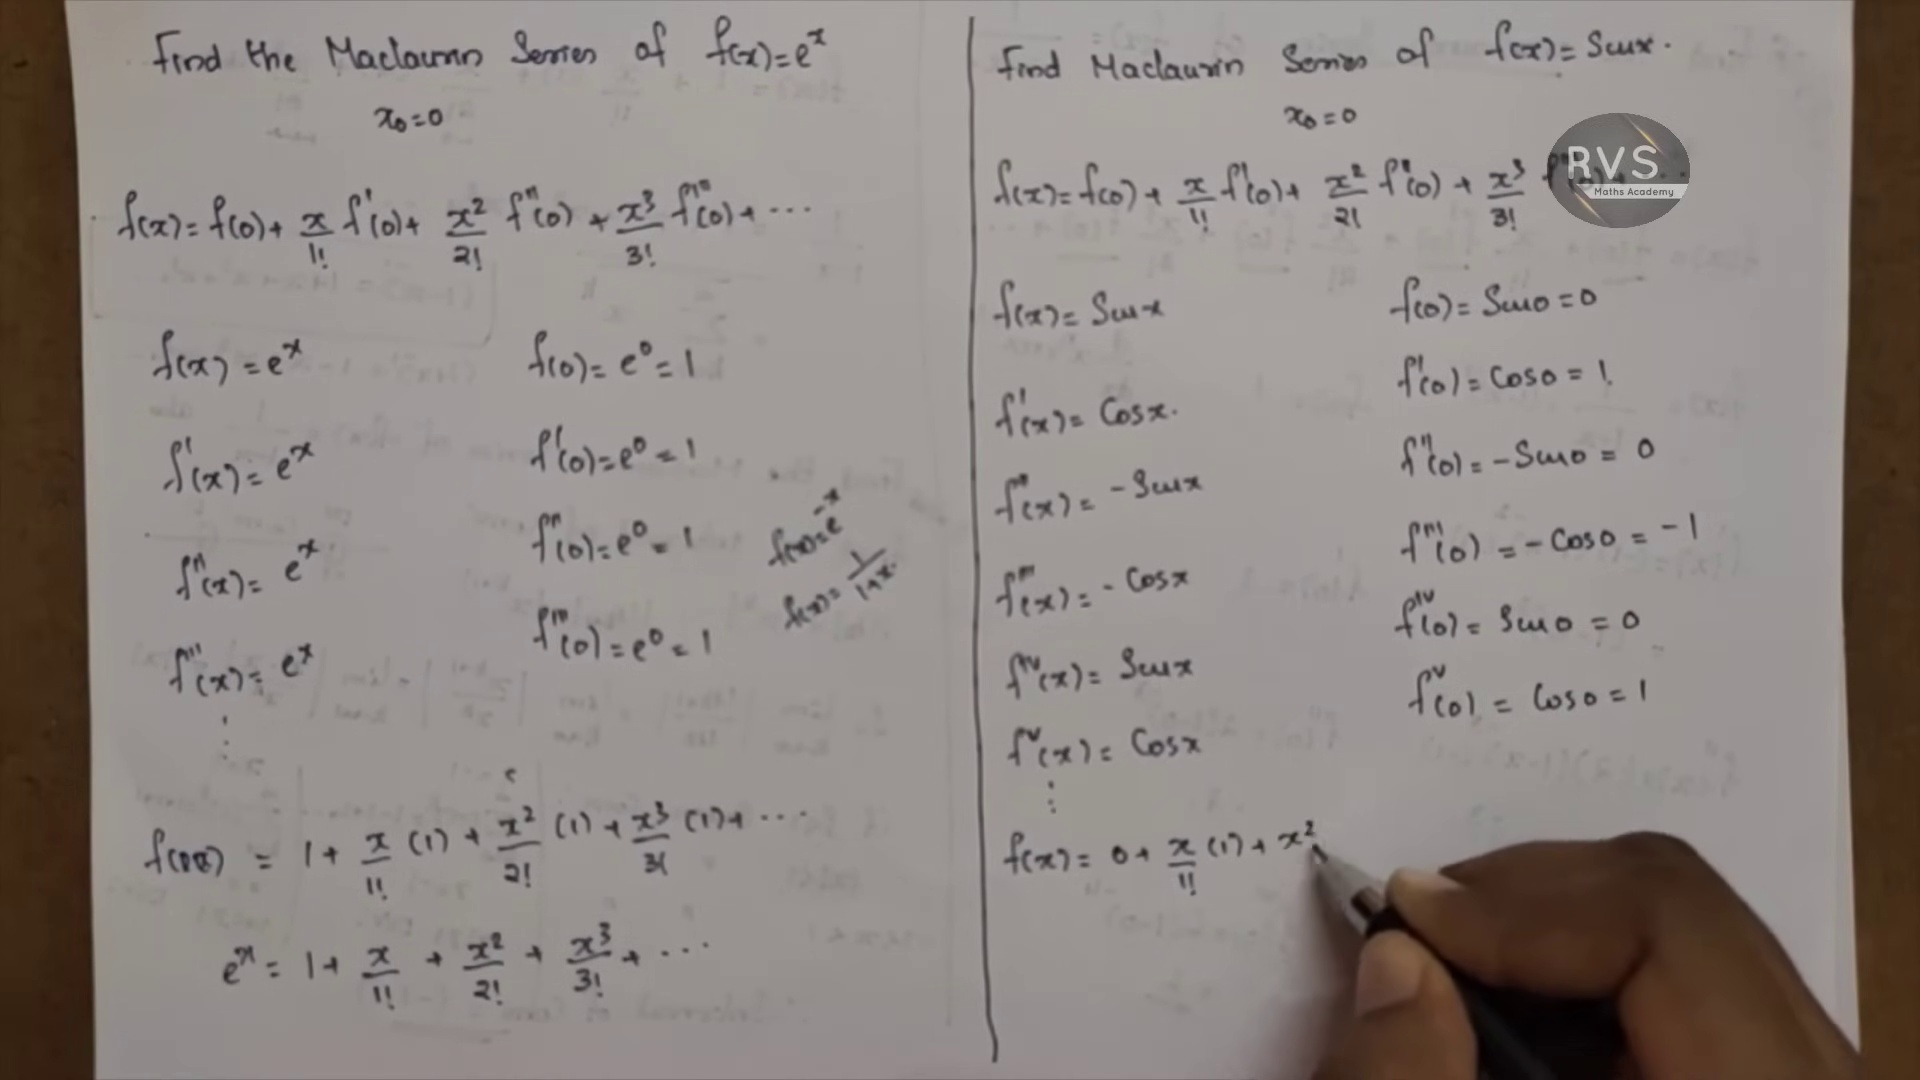 Find the Maclaurin Series of f(x)=e^x
x₀=0
f(x)= f(0)+ x/1! f'(0)+ x²/2! f''(0) + x³/3! f'''(0)+ ...
f(x) = e^x
f(0)= e⁰ = 1
f'(x)= e^x
f'(0)=e⁰ = 1
f''(x)= e^x
f''(0)=e⁰ = 1
f'''(x)= e^x
f'''(0)=e⁰ = 1
f(x)=e^-x
f(x)= 1/1+x.
= 1+ x/1! (1) + x²/2! (1) + x³/3! (1)+ ...
e^x = 1+ x/1! + x²/2! + x³/3! + ...
Find Maclaurin Series of f(x)= Sinx.
x₀=0
f(x)=f(0)+ x/1! f'(0)+ x²/2! f''(0) + x³/3!
RVS
Maths Academy
f(x)= Sinx
f(0)= Sin0 =0
f'(x)= Cosx.
f'(0) = Cos0 = 1.
f''(x) = -Sinx
f''(0)= -Sin0 = 0
f'''(x)= -Cosx
f'''(0) = -Cos0 = -1
f^iv(x)= Sinx
f^iv(0)= Sin0 = 0
f^v(x)= Cosx
f^v(0) = Cos0 = 1
f(x)= 0+ x/1! (1)+ x²